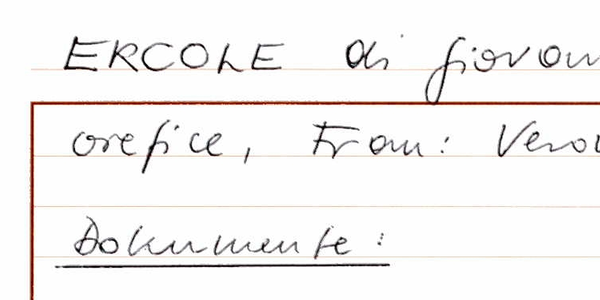 ERCOLE di Giovan
orefice, Frau: Vero
Dokumente: